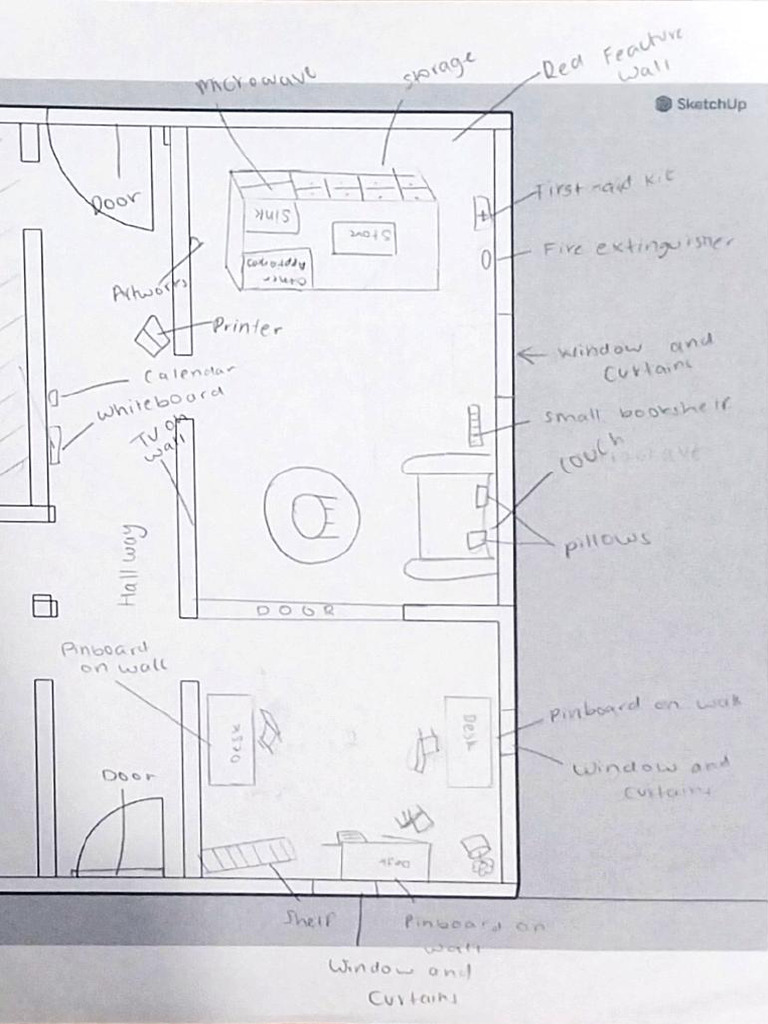 microwave
storage
Red Feature
Wall
SketchUp
Door
Sink
Stove
Other
First-aid kit
Fire extinguisher
Artworks
Printer
Window and
Curtains
Calendar
Whiteboard
TV on
wall
Small bookshelf
couch
pillows
Hallway
DOOR
Pinboard
on wall
Desk
Desk
Pinboard on wall
Window and
curtains
Door
Desk
Shelf
Pinboard on
wall
Window and
Curtains